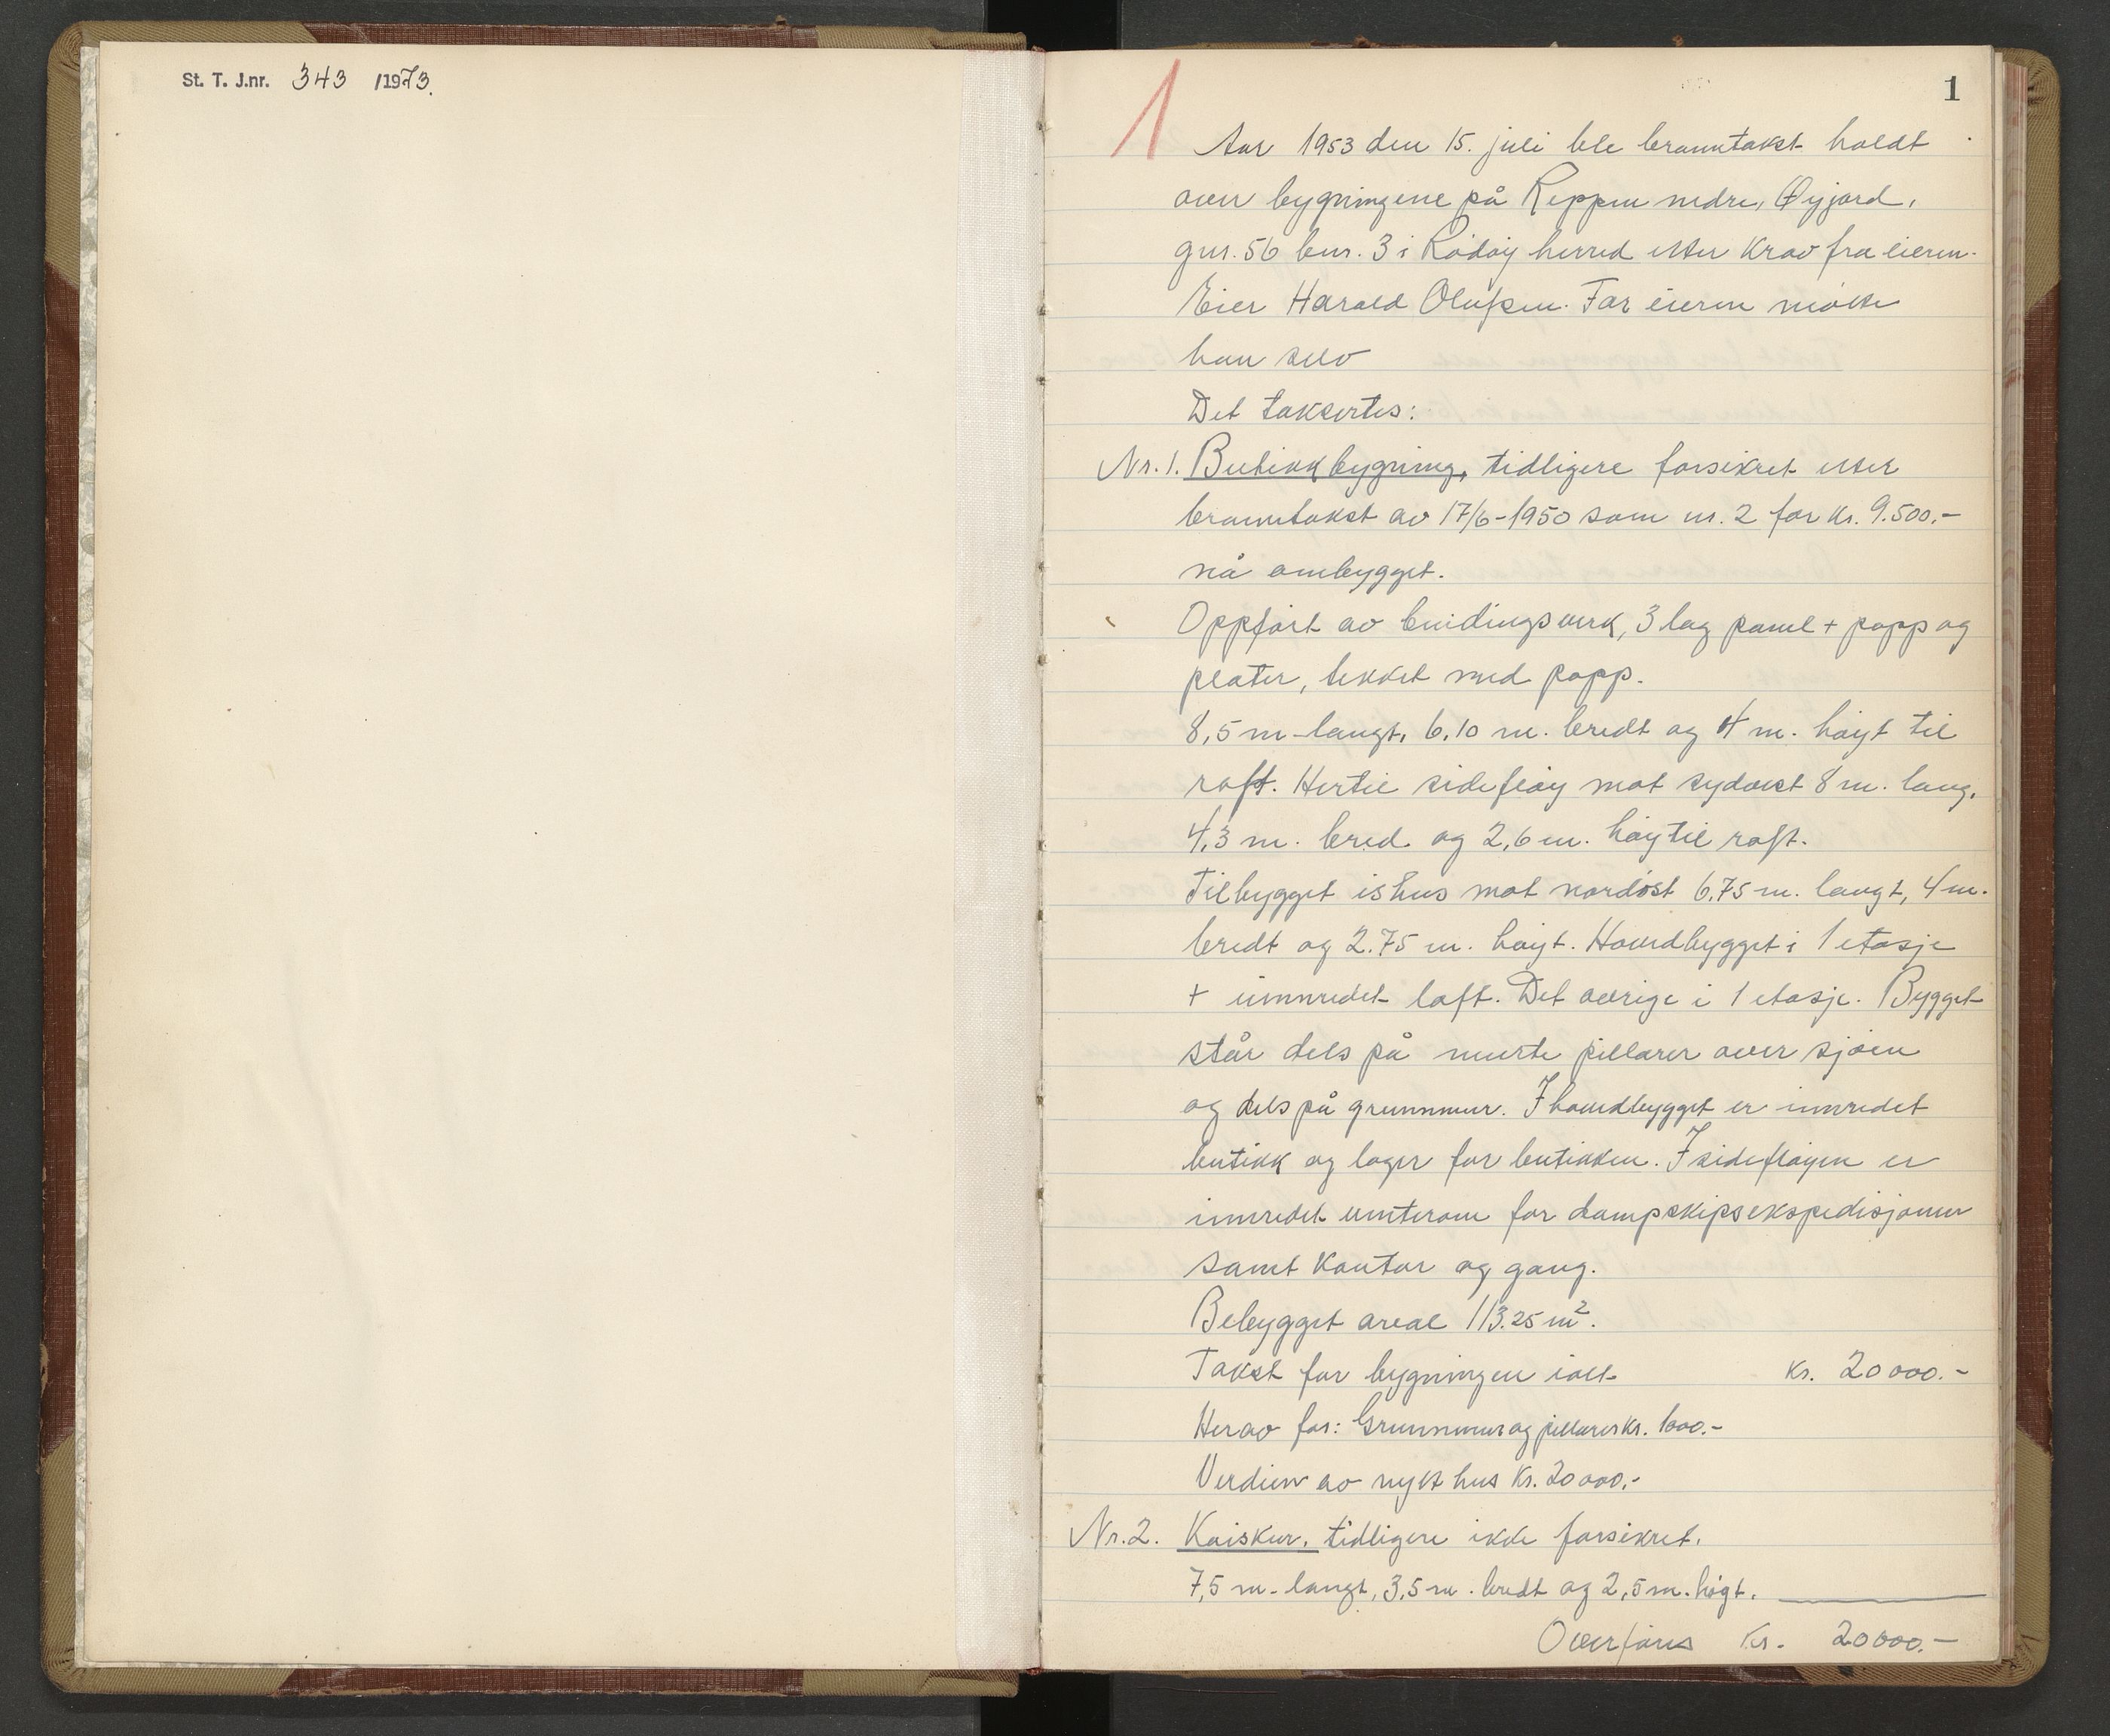 St. T. J.nr. 343 /1973.
1
1
Aar 1953 den 15. juli ble branntakst holdt
over bygningene på Reppen nedre, Øyjord,
gnr. 56 bnr. 3 i Rødøy herred etter krav fra eieren.
Eier Harald Olufsen. For eieren møtte
han selv
Det taksertes:
Nr. 1. Butikkbygning, tidligere forsikret etter
branntakst av 17/6-1950 som nr. 2 for kr. 9.500.-
nå ombygget.
Oppført av bindingsverk, 3 lag panel + papp og
plater, tekket med papp.
8,5 m langt, 6,10 m. bredt og 4 m. høyt til
raft. Hertil sidefløy mot sydvest 8 m. lang,
4,3 m. bred og 2,6 m. høy til raft.
Tilbygget ishus mot nordöst 6,75 m. langt, 4 m.
bredt og 2.75 m. høyt. Hovedbygget i 1 etasje
+ innredet loft. Det øvrige i 1 etasje. Bygget
står dels på murte pillarer over sjøen
og dels på grunnmur. I hovedbygget er innredet
butikk og lager for butikken. I sidefløyen er
innredet venterom for dampskipsekspedisjonen
samt kontor og gang.
Bebygget areal 113.25 m².
Takst for bygningen ialt kr. 20000.-
Herav for: Grunnmur og pillarer kr. 1000.-
Verdien av nytt hus kr. 20000.-
Nr. 2. Kaiskur, tidligere ikke forsikret.
7,5 m. langt, 3,5 m. bredt og 2,5 m. høgt.
Overføres kr. 20000.-